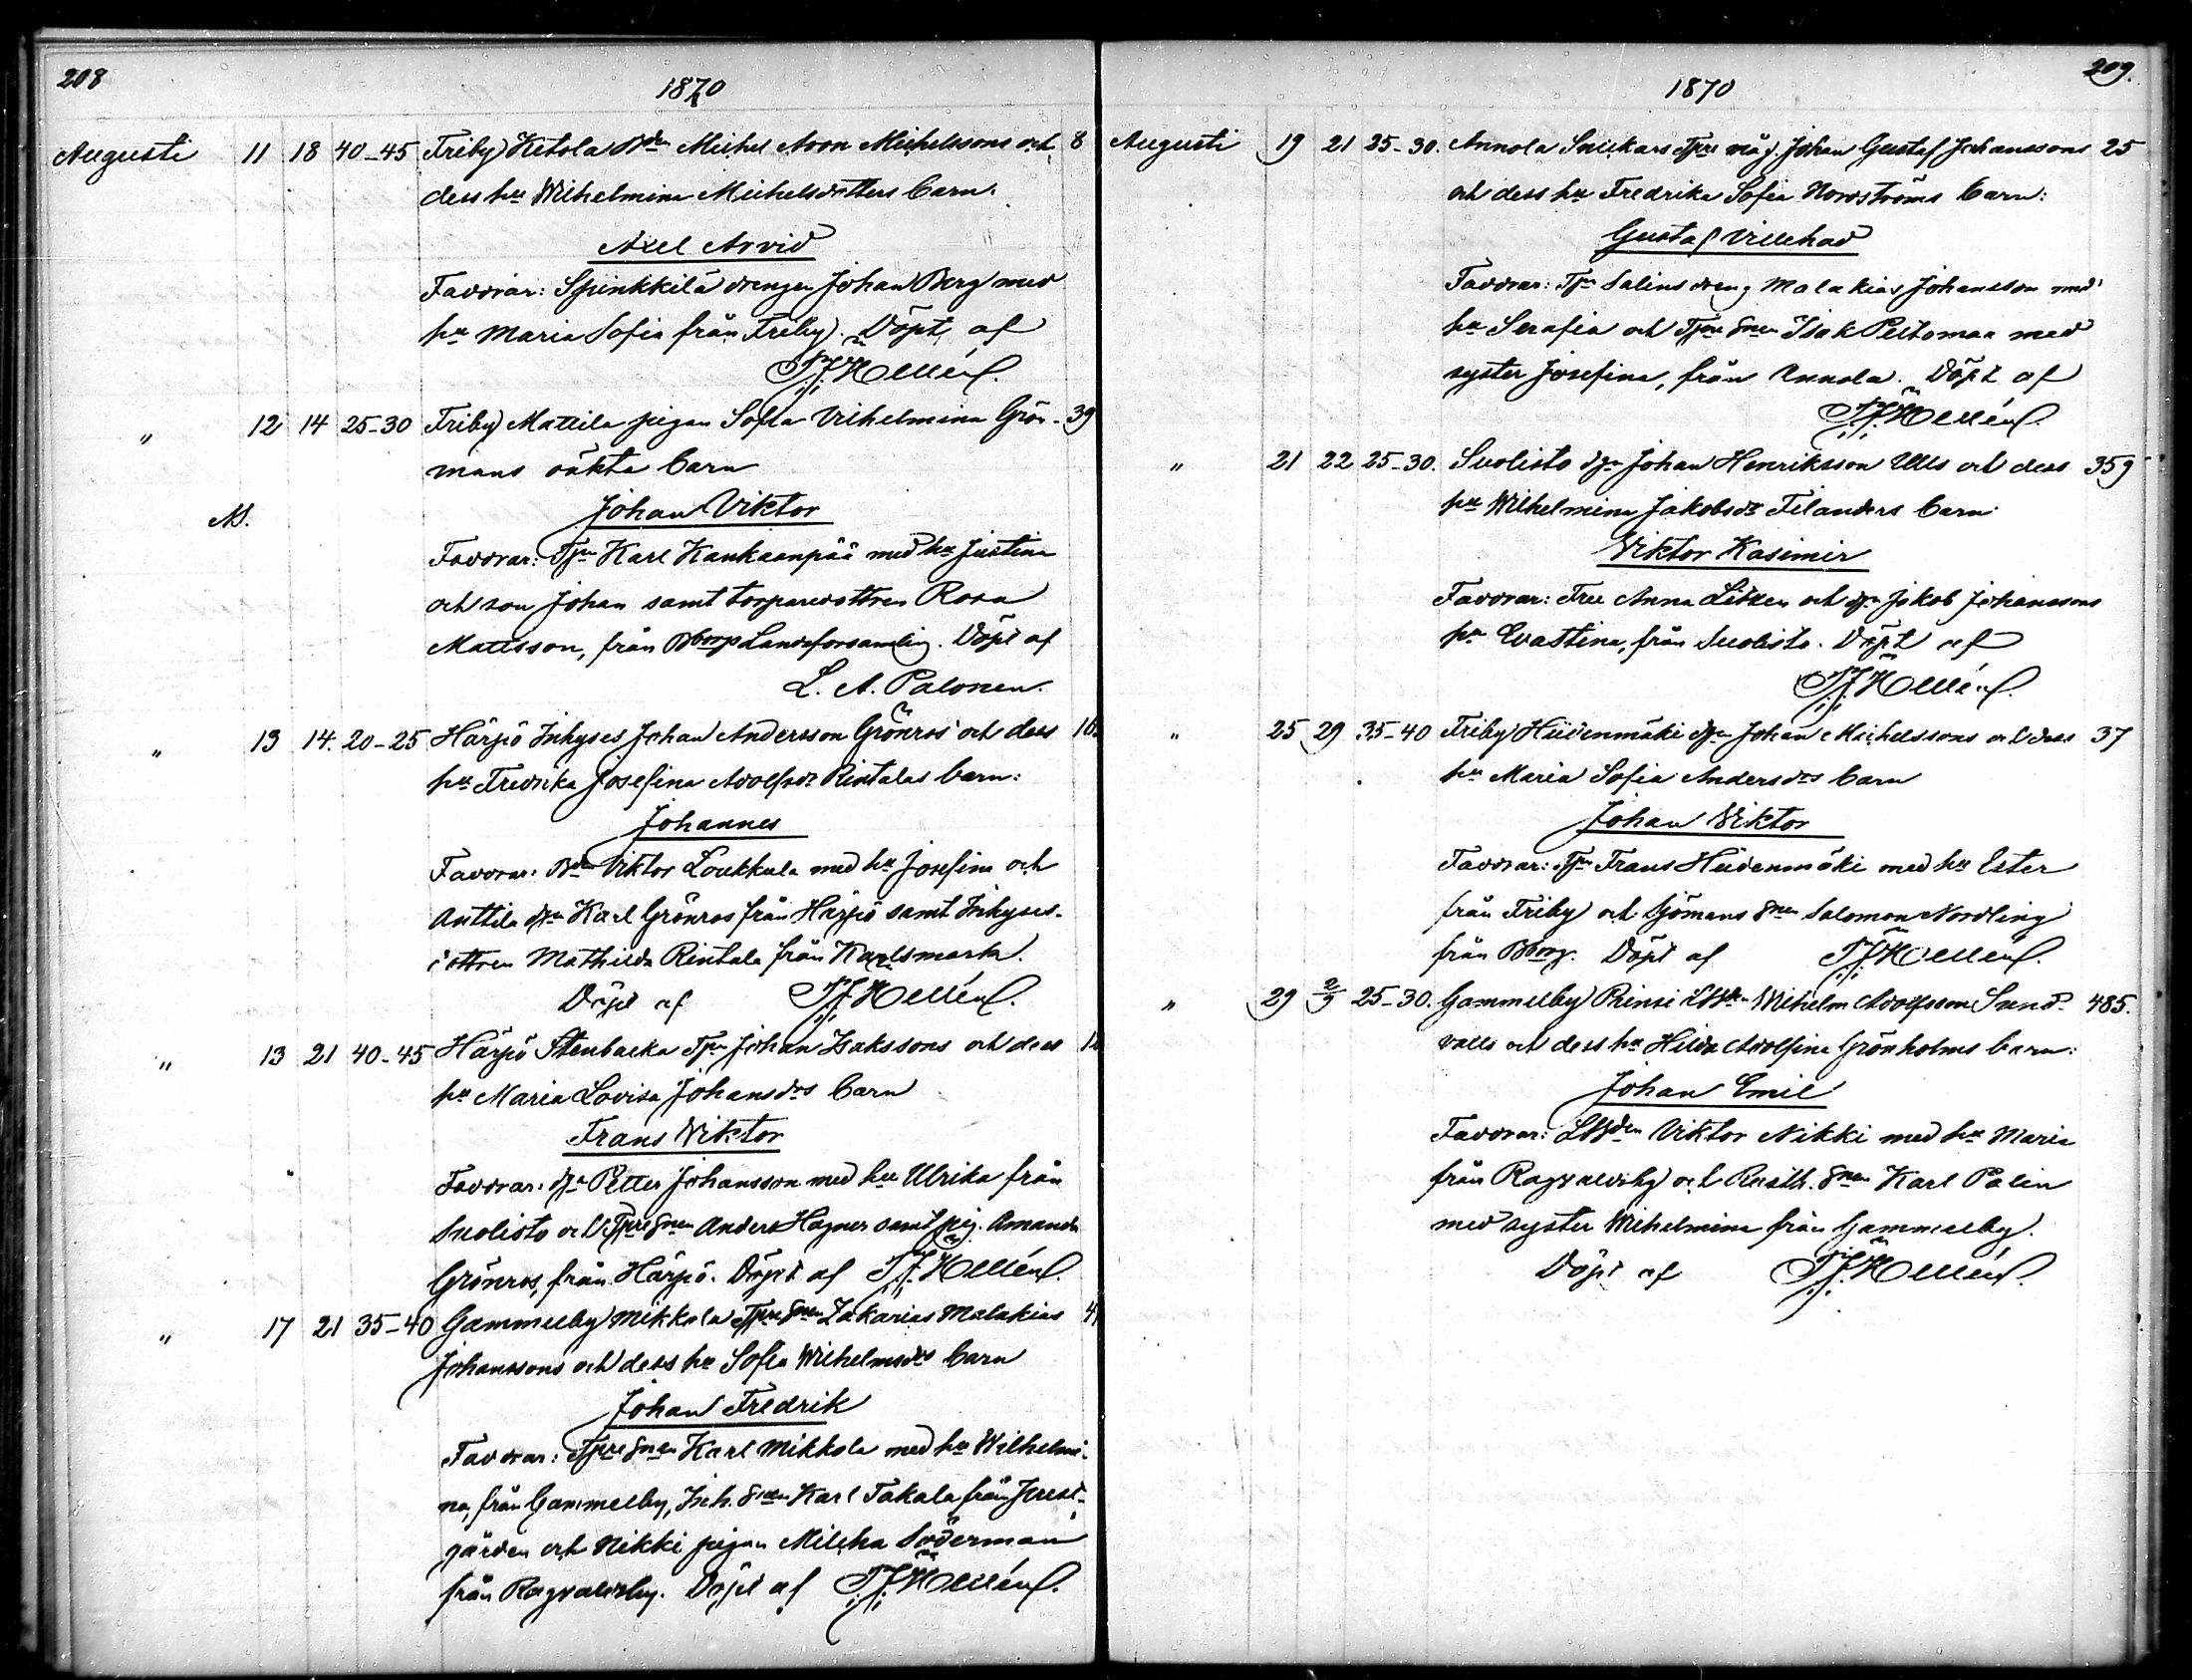 208
1870
Augusti 11 18 40-45 Friby Kitola Bden Michel Aron Michelssons och 8
dess hu Wilhelmina Michelsdotters barn.
Axel Arvid
Faddrar: drengen Johan Berg med
hu Maria Sofia från Friby. Döpt af
Hellén.
" 12 14 25-30 Friby Mattila pigan Sofia Vilhelmina Grön- 39
mans oäkta barn
Johan Viktor
Faddrar: Tpn Karl Kankaanpää med hu Justina
och son Johan samt torparedottren Rosa
Mattsson, från Bborgs Landsforsamling. Döpt af
L. A. Palonen.
" 13 14. 20-25 Härpö Inhyses Johan Andersson Grönros och dess
hu Fredrika Josefina Adolfsdr Rintalas barn:
Johannes
Faddrar: Bdn Viktor Loukkula med hu Josefina och
Anttila dgn Karl Grönros från Härpö samt Inhyses-
dottren Mathilda Rintala från Karlsmark.
Döpt af Hellén.
" 13 21 40-45 Härpö Stenbacka Tpn Johan Isakssons och dess
hu Maria Lovisa Johansdrs barn
Frans Wiktor
Faddrar: dgn Petter Johansson med hu Ulrika från
Suolisto och Tpresnen Anders Hagner samt pig. Amanda
Grönros, från Härpö. Döpt af Hellén.
" 17 21 35-40 Gammelby Mikkola Tpresnen Zakarias Malakias
Johanssons och dess hu Sofia Wilhelmsdrs barn
Johan Fredrik
Faddrar: Tpresnen Karl Mikkola med hu Wilhelmi-
na, från Gammelby, Inh. snen Karl Takala från Prest-
gården och Nikki pigan Milcha Söderman
från Ragvaldsby. Döpt af Hellén.
209.
1870
Augusti 19 21 25-30. Annola Snickars Tpre måg. Johan Gustaf Johanssons 25
och dess hu Fredrika Sofia Nordströms barn:
Gustaf Villehad
Faddrar: Tpn Salins dreng Malakias Johansson med
hu Serafia och Tpre snen Isak Peitomaa med
syster Josefina, från Annola. Döpt af
Hellén.
" 21 22 25-30. Suolisto dgn Johan Henriksson Ulls och dess 359
hu Wilhelmina Jakobsdr Filanders barn
Viktor Kasimir
Faddrar: Fru Anna Litzen och dgn Jakob Johanssons
hu Evastina, från Suolisto. Döpt af
Hellén.
" 25 29 35-40 Friby Hiidenmäki dgn Johan Michelssons och dess 37
hu Maria Sofia Andersdrs barn
Johan Wiktor
Faddrar: Tpn Frans Hiidenmäki med hu Ester
från Friby och Sjömans snen Salomon Nordling
från Bborg. Döpt af Hellén.
" 29 2/9 25-30. Gammelby Prinsi Wilhelm Adolfsson Sund- 485.
valls och dess hu Hilda Adolfina Grönholms barn:
Johan Emil
Faddrar: LBden Viktor Nikki med hu Maria
från Ragvaldsby och Rusth. snen Karl Palin
med syster Wilhelmina från Gammelby.
Döpt af Hellén.